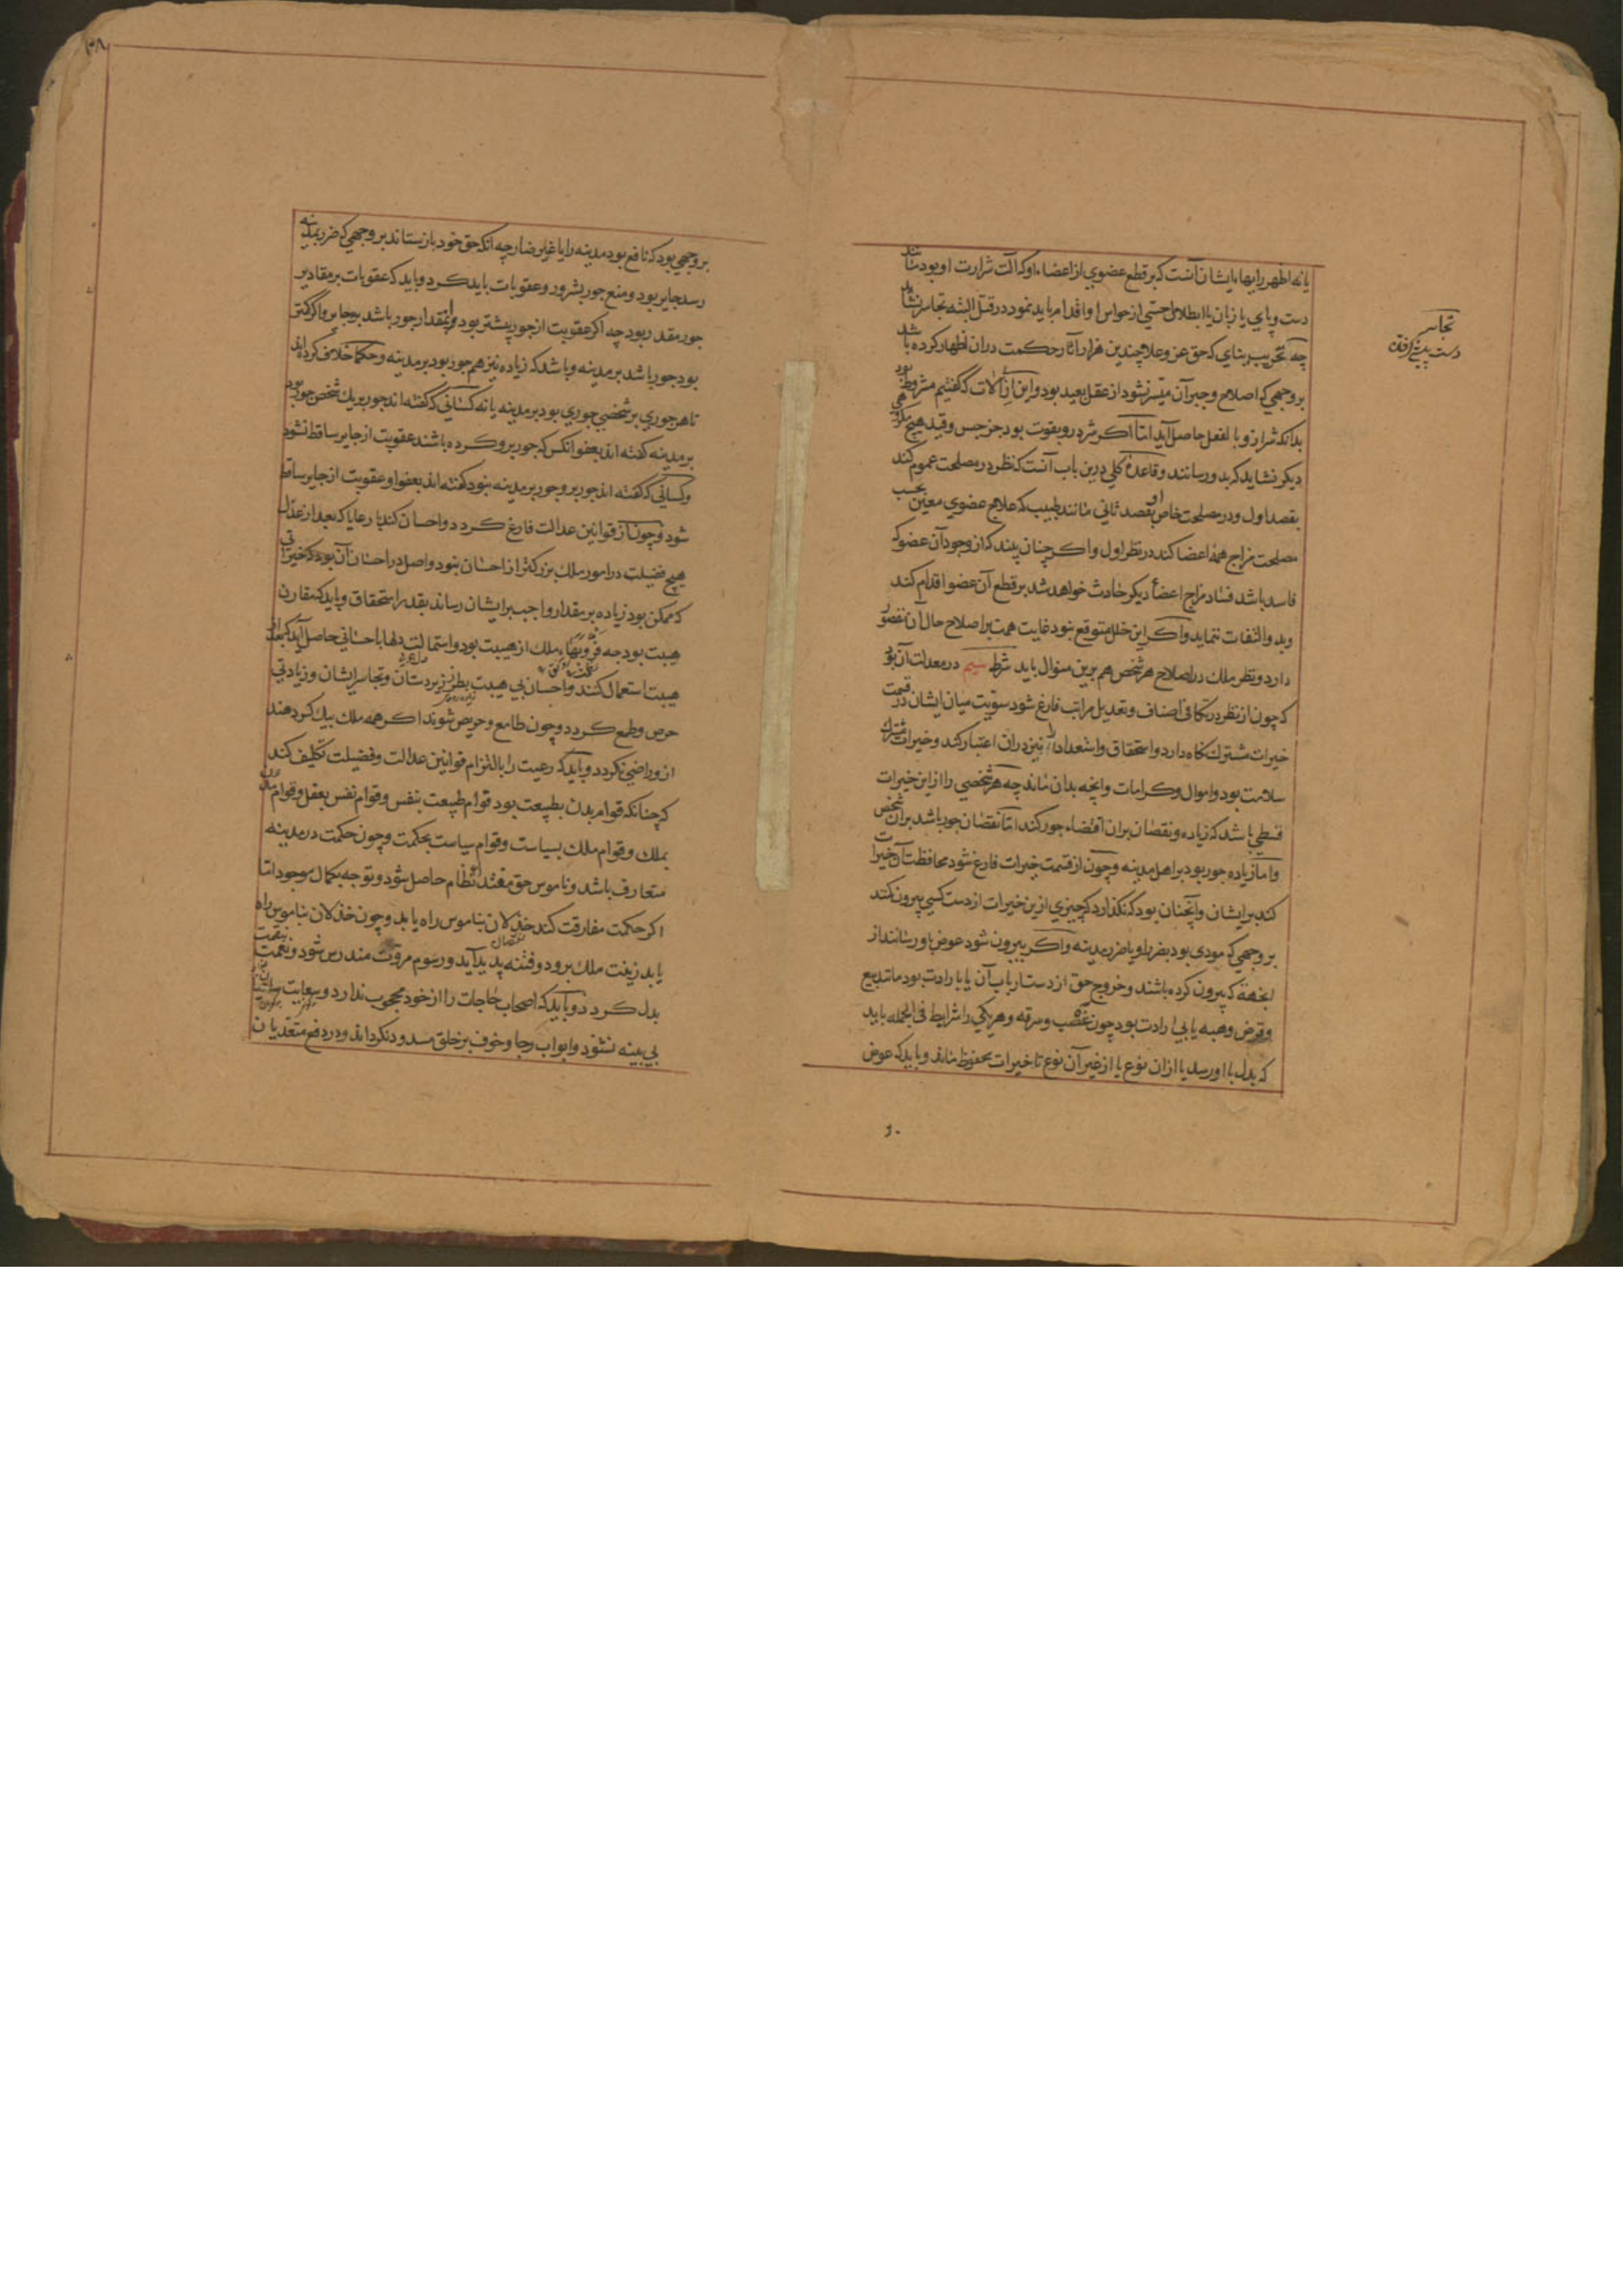 یا نه اظهر رایهاء ایشان آنست که بر قطع عضوی از اعضاء او که آلت شرارت او بود مانند
دست و پای یا زبان یا ابطال حسی از حواس او اقدام باید نمود در قتل البته تجاسر نشاید
چه تخریب بنای که حق عز و علا چندین هزار آثار حکمت دران اظهار کرده باشد
بر وجهی که اصلاح و جبر آن میسر نشود از عقل بعید بود و این ازالات که گفتیم مشروط بود
بدانکه شر ازو بالفعل حاصل آید اما اگر شر درو بقوت بود جز حبس و قید هیچ مکروهی
دیگر نشاید که بدو رسانند و قاعدهٔ کلی درین باب آنست که نظر در مصلحت عموم کند
بقصد اول و در مصلحت خاص او بقصد ثانی مانند طبیب که علاج عضوی معین بحسب
مصلحت مزاج همهٔ اعضا کند در نظر اول و اگر چنان بیند که از وجود آن عضو که
فاسد باشد فساد مزاج اعضاء دیگر حادث خواهد شد بر قطع آن عضو اقدام کند
و بدو التفات ننماید و اگر این خلل متوقع نبود غایت همت بر اصلاح حال آن مقصور
دارد و نظر ملک در اصلاح هر شخص هم برین منوال باید شرط سیم در معدلت آن بود
که چون از نظر در تکافی اصناف و تعدیل مراتب فارغ شود سویت میان ایشان در قسمت
خیرات مشترک نگاه دارد و استحقاق و استعداد را نیز دران اعتبار کند و خیرات مشترک
سلامت بود و اموال و کرامات و آنچه بدان ماند چه هر شخصی را ازین خیرات
قسطی باشد که زیاده و نقصان بران اقتضاء جور کند اما نقصان جور باشد بران شخص
و اما زیاده جور بود بر اهل مدینه و چون از قسمت خیرات فارغ شود محافظت آن خیرات
کند بر ایشان و آنچنان بود که نگذارد که چیزی ازین خیرات از دست کسی بیرون کنند
بر وجهی که مودی بود بضرر او یا ضرر مدینه و اگر بیرون شود عوض باو رسانند از
انجهة که بیرون کرده باشند و خروج حق از دست ارباب آن یا بارادت بود مانند بیع
و قرض و هبه یا بی ارادت بود چون غصب و سرقه و هر یکی را شرایط فی الجمله باید
که بدل با او رسد یا ازان نوع یا از غیر آن نوع تا خیرات محفوظ ماند و باید که عوض
تجاسر
بر وجهی بود که نافع بود مدینه را یا غیر ضار چه آنکه حق خود باز ستاند بر وجهی که ضرر بمدینه
رسد جایر بود و منع جور بشرور و عقوبات باید کرد و باید که عقوبات بر مقادیر
جور مقدر بود چه اگر عقوبت از جور بیشتر بود بمقدار جور باشد بر جایر و اگر کمتر
بود جور باشد بر مدینه و باشد که زیاده نیز هم جور بود بر مدینه و حکما خلاف کرده اند
تا هر جوری بر شخصی جوری بود بر مدینه یا نه کسانی که گفته اند جور بر یک شخص جور بود
بر مدینه گفته اند بعفو آنکس که جور برو کرده باشند عقوبت از جایر ساقط نشود
و کسانی که گفته اند جور برو جور بر مدینه نبود گفته اند بعفو او عقوبت از جایر ساقط
شود و چون از قوانین عدالت فارغ گردد و احسان کند با رعایا که بعد از عدل
هیچ فضیلت در امور ملک بزرگتر از احسان نبود و اصل در احسان آن بود که خیراتی
که ممکن بود زیاده بر مقدار واجب بر ایشان رساند بقدر استحقاق و باید که مقارن
هیبت بود چه فر و بهاء ملک از هیبت بود و استمالت دلها با حسانی حاصل آید که بعد از
هیبت استعمال کنند و احسان بی هیبت بطر زیردستان و تجاسر ایشان و زیادتی
حرص و طمع گردد و چون طامع و حریص شوند اگر همه ملک بیک کس دهند
ازو راضی نگردد و باید که رعیت را بالتزام قوانین عدالت و فضیلت تکلیف کند
که چنانکه قوام بدن بطبیعت بود قوام طبیعت بنفس و قوام نفس بعقل و قوام مدن
بملک و قوام ملک بسیاست و قوام سیاست بحکمت و چون حکمت در مدینه
متعارف باشد و ناموس حق مقتدا نظام حاصل شود و توجه بکمال موجود اما
اگر حکمت مفارقت کند خذلان بناموس راه یابد و چون خذلان بناموس راه
یابد زینت ملک برود و فتنه پدید آید و رسوم مروت مندرس شود و نعمت بنقمت
بدل گردد و باید که اصحاب حاجات را از خود محجوب ندارد و سعایت ساعیان
بی بینه نشنود و ابواب رجا و خوف بر خلق مسدود نگرداند و در دفع متعدیان